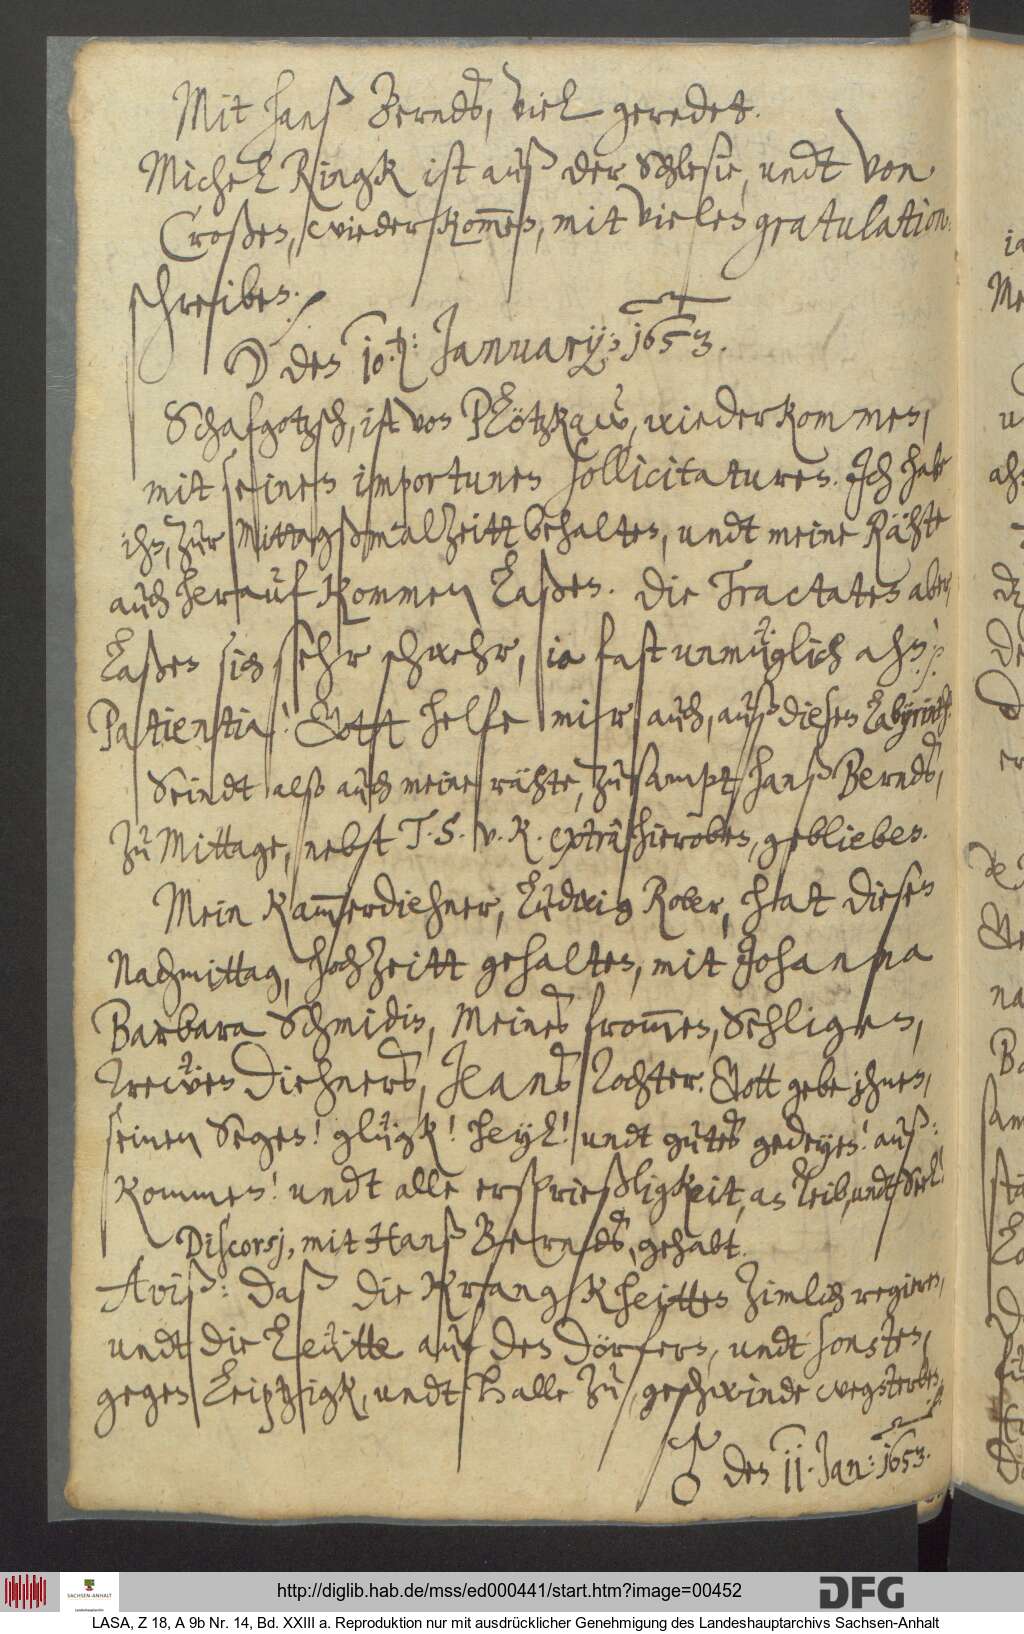 Mit Hanß Berndt, viel geredet.
Michel Ringk ist auß der Schlesie, undt von
Croßen, wieder kommen, mit vielen gratulation:
schreiben.
☽ den 10.ten: January: 1653.
Schafgotzsch, ist von Plötzkaw, wieder kommen,
mit seinen importunen sollicitaturen. Ich hab
ihn, zur Mittagßmalzeitt behalten, undt meine Rähte
auch herauf kommen laßen. Die Tractaten aber,
laßen sich sehr schwehr, ja fast unmüglich ahn.
Patientia! Gott helfe mir auch, auß diesen labyrinth.
Seindt also auch meine rähte, zusampt Hanß Berndt,
zu Mittage, nebst T. S. v. R. extra hieroben, geblieben.
Mein Kammerdiehner, Ludwig Rober, hat diesen
Nachmittag, hochzeitt gehalten, mit Johanna
Barbara Schmidin, Meines frommen, Sehligen,
trewen Diehners, Jeans Tochter. Gott gebe ihnen,
seinen Segen! glügk! heyl! undt gutes gedeyen! auß-
kommen! undt alle ersprießligkeit, an leib, undt Seel!
Discorsj, mit Hanß Berndt, gehabt.
Aviß: daß die Krangkheitten zimlich regiren,
undt die Leütte auf den Dörfern, undt sonsten,
gegen Leiptzigk, undt Halle zu, geschwinde wegsterben.
♂ den 11. Jan: 1653.
http://diglib.hab.de/mss/ed000441/start.htm?image=00452
SACHSEN-ANHALT
DFG
LASA, Z 18, A 9b Nr. 14, Bd. XXIII a. Reproduktion nur mit ausdrücklicher Genehmigung des Landeshauptarchivs Sachsen-Anhalt